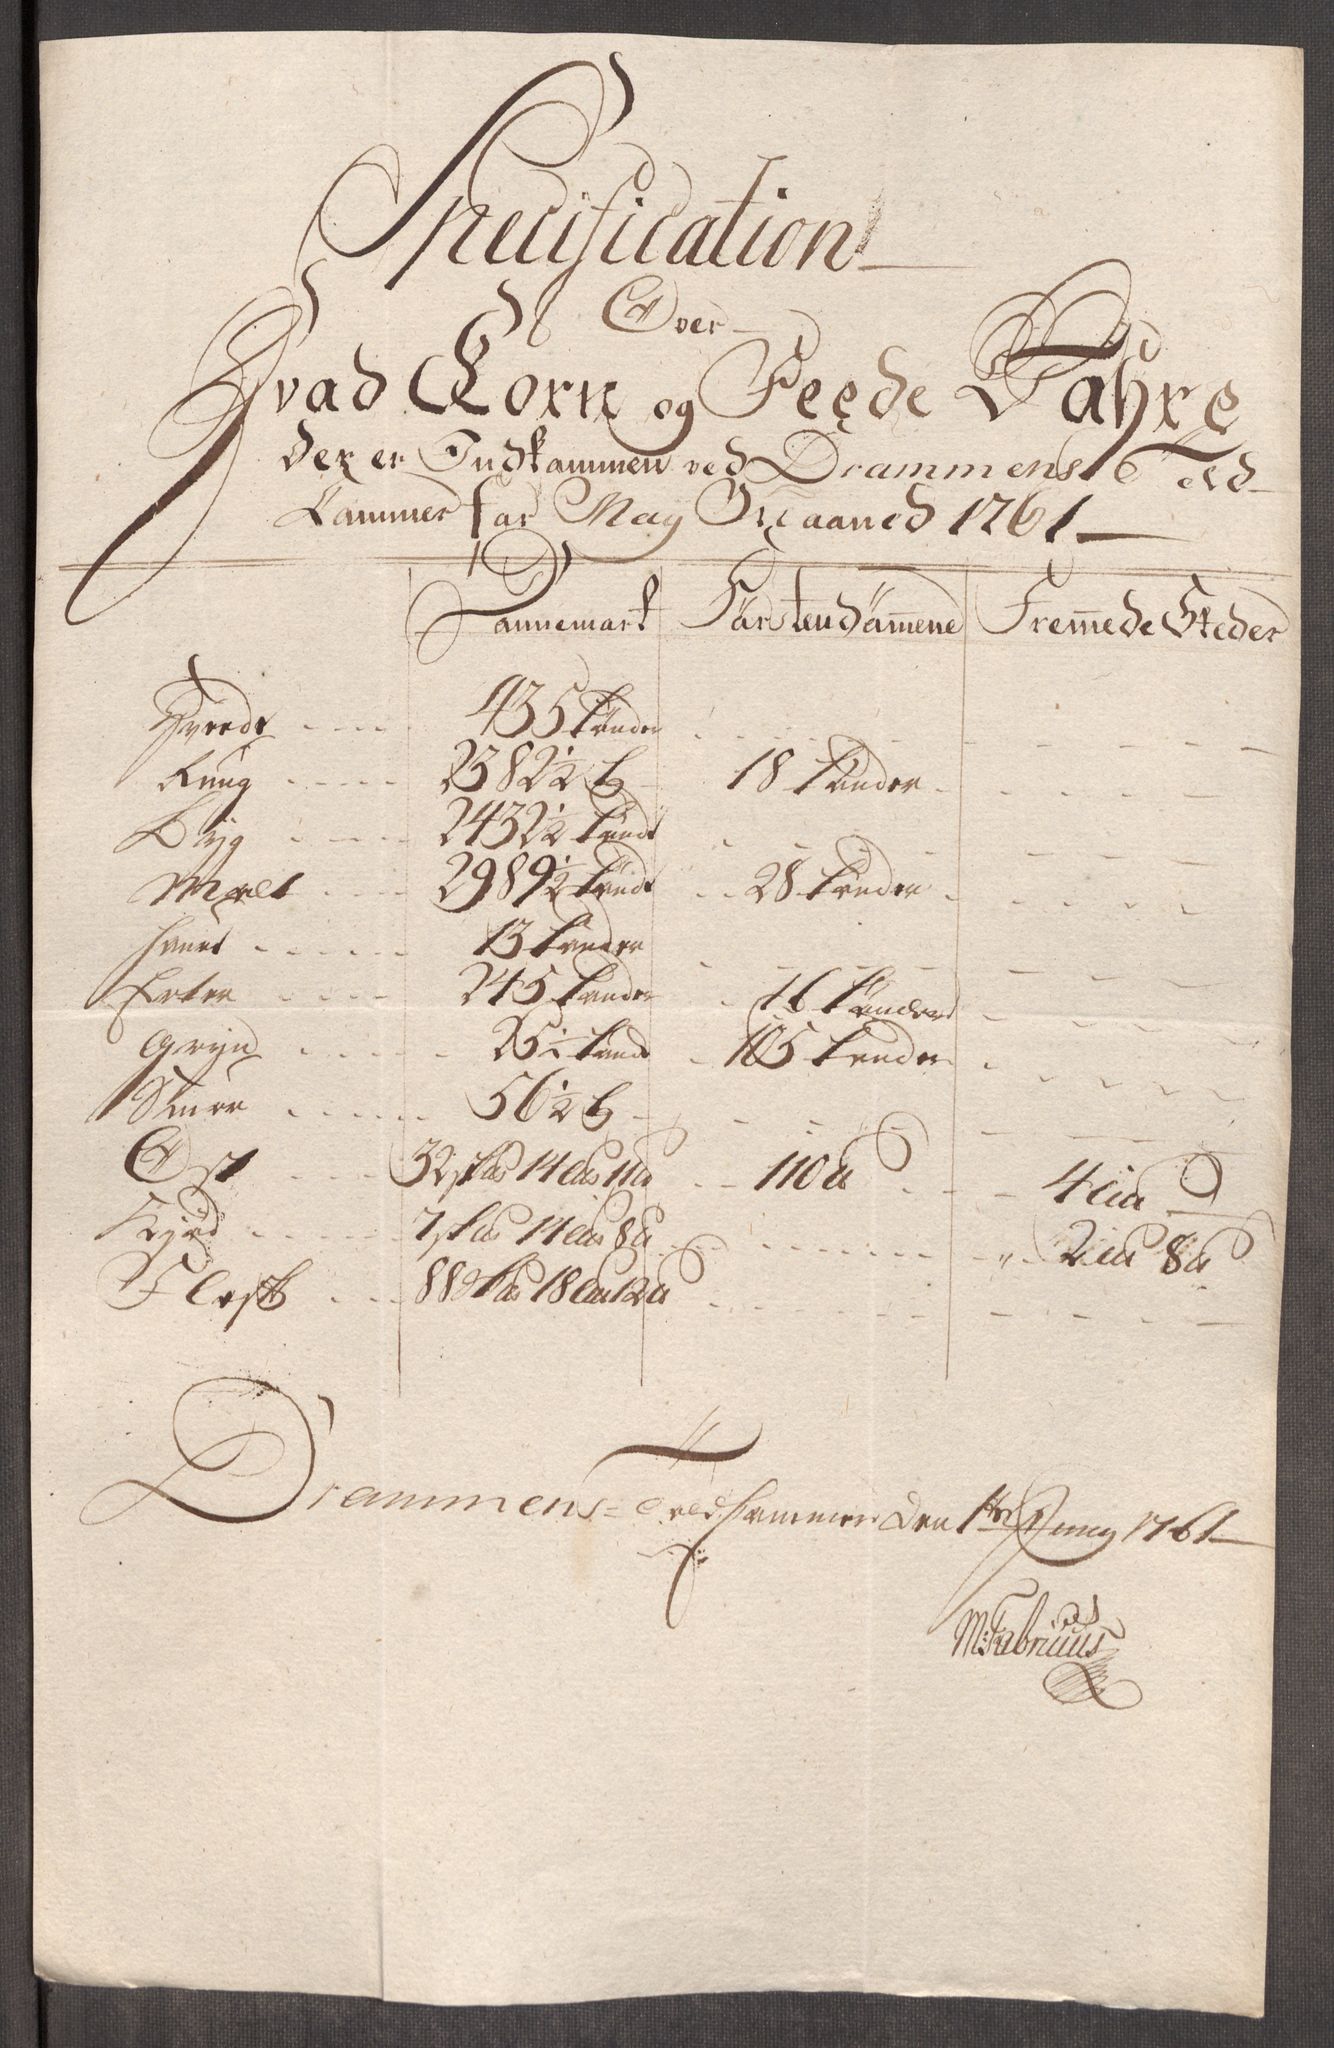 Specification
Over
Hvad Korn og Feede Vahre
der er Indkommen ved Drammens Told
Kammer for May Maaned 1761
Dannemark Förstendömene Fremmede Steder
Hveede 435 tönder
Rug 2382½ tr 18 tönder
Byg 2432½ tönd
Malt 2989½ tönde 28 tönder
Havre 13 tönder
Erter 245 tönder 16 tönder
Gryn 25½ tönde 105 tönder
Smör 56½ tr
Ost 32 14 11 110 ℔ 4
Kiöd 7 14 8 ℔ 2 8 ℔
Flesk 88 18 12 ℔
Drammens Toldkammer den 1ste Juny 1761
M: Fabricius